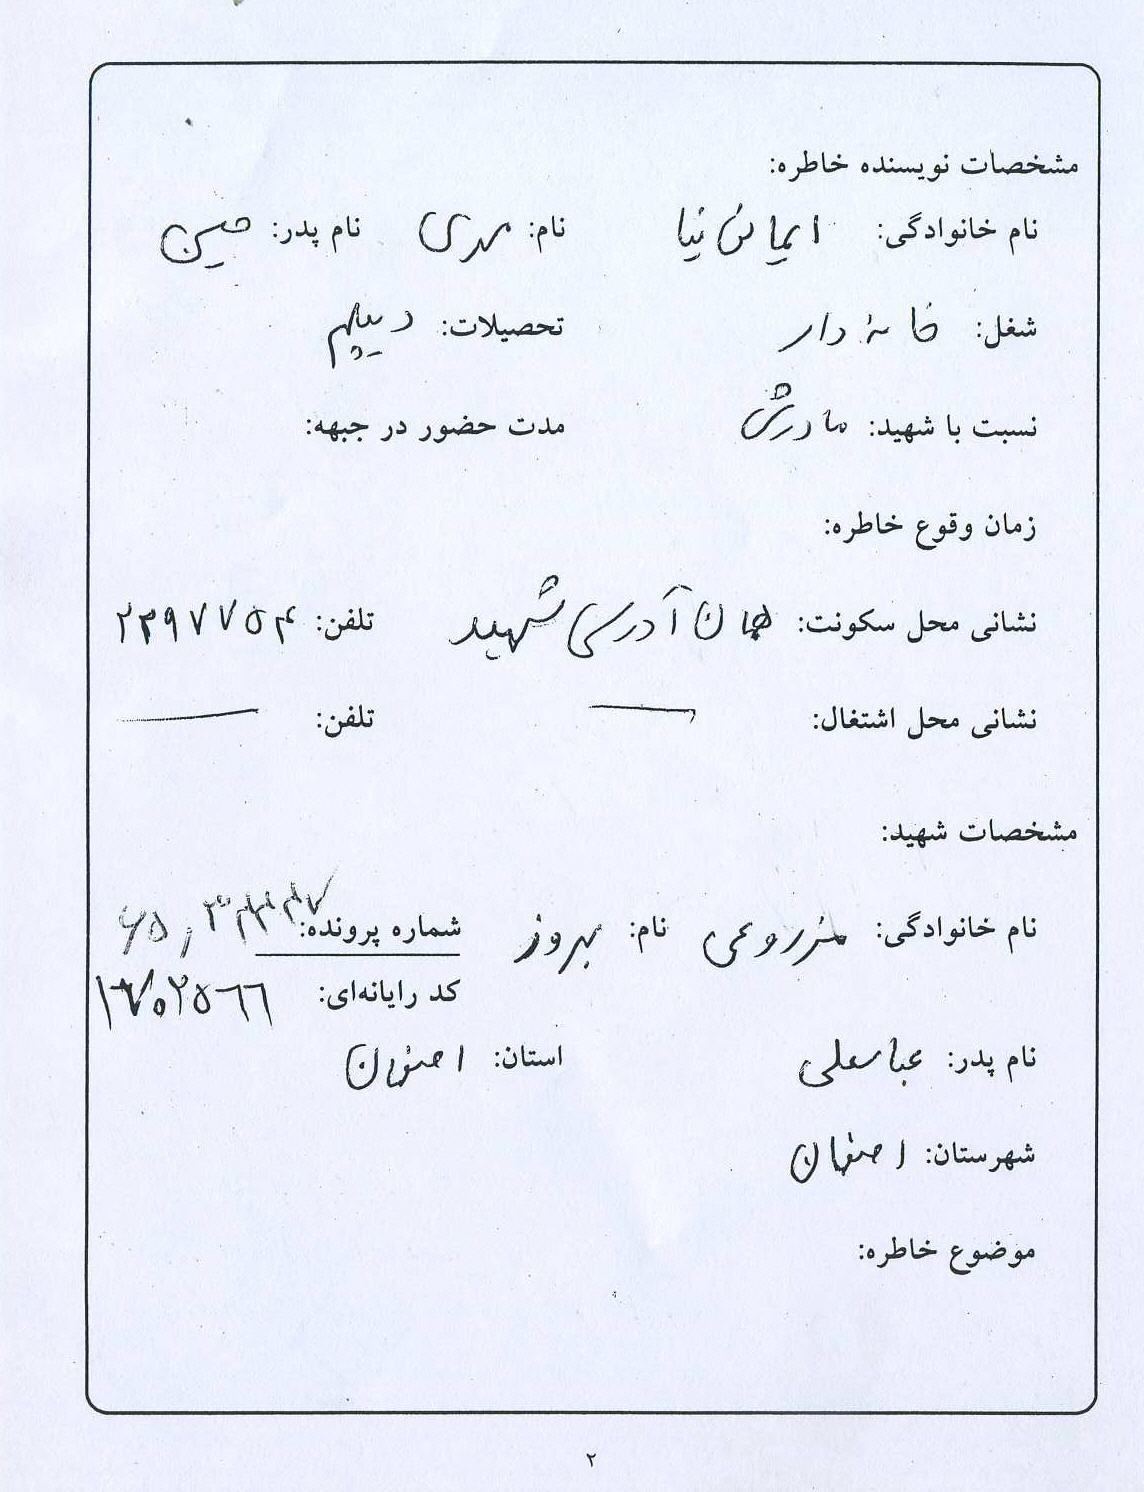 مشخصات نویسنده خاطره:
نام خانوادگی: ایمان نیا نام: مهدی نام پدر: حسین
شغل: خانه دار تحصیلات: دیپلم
نسبت با شهید: مادرش مدت حضور در جبهه:
زمان وقوع خاطره:
نشانی محل سکونت: همان آدرس شهید تلفن: ۲۲۹۷۷۵۴
نشانی محل اشتغال: — تلفن: —
مشخصات شهید:
نام خانوادگی: مزروعی نام: بهروز شماره پرونده:
کد رایانه‌ای: ۱۶۷۰۲۵۶۶
نام پدر: عباسعلی استان: اصفهان
شهرستان: اصفهان
موضوع خاطره:
۲